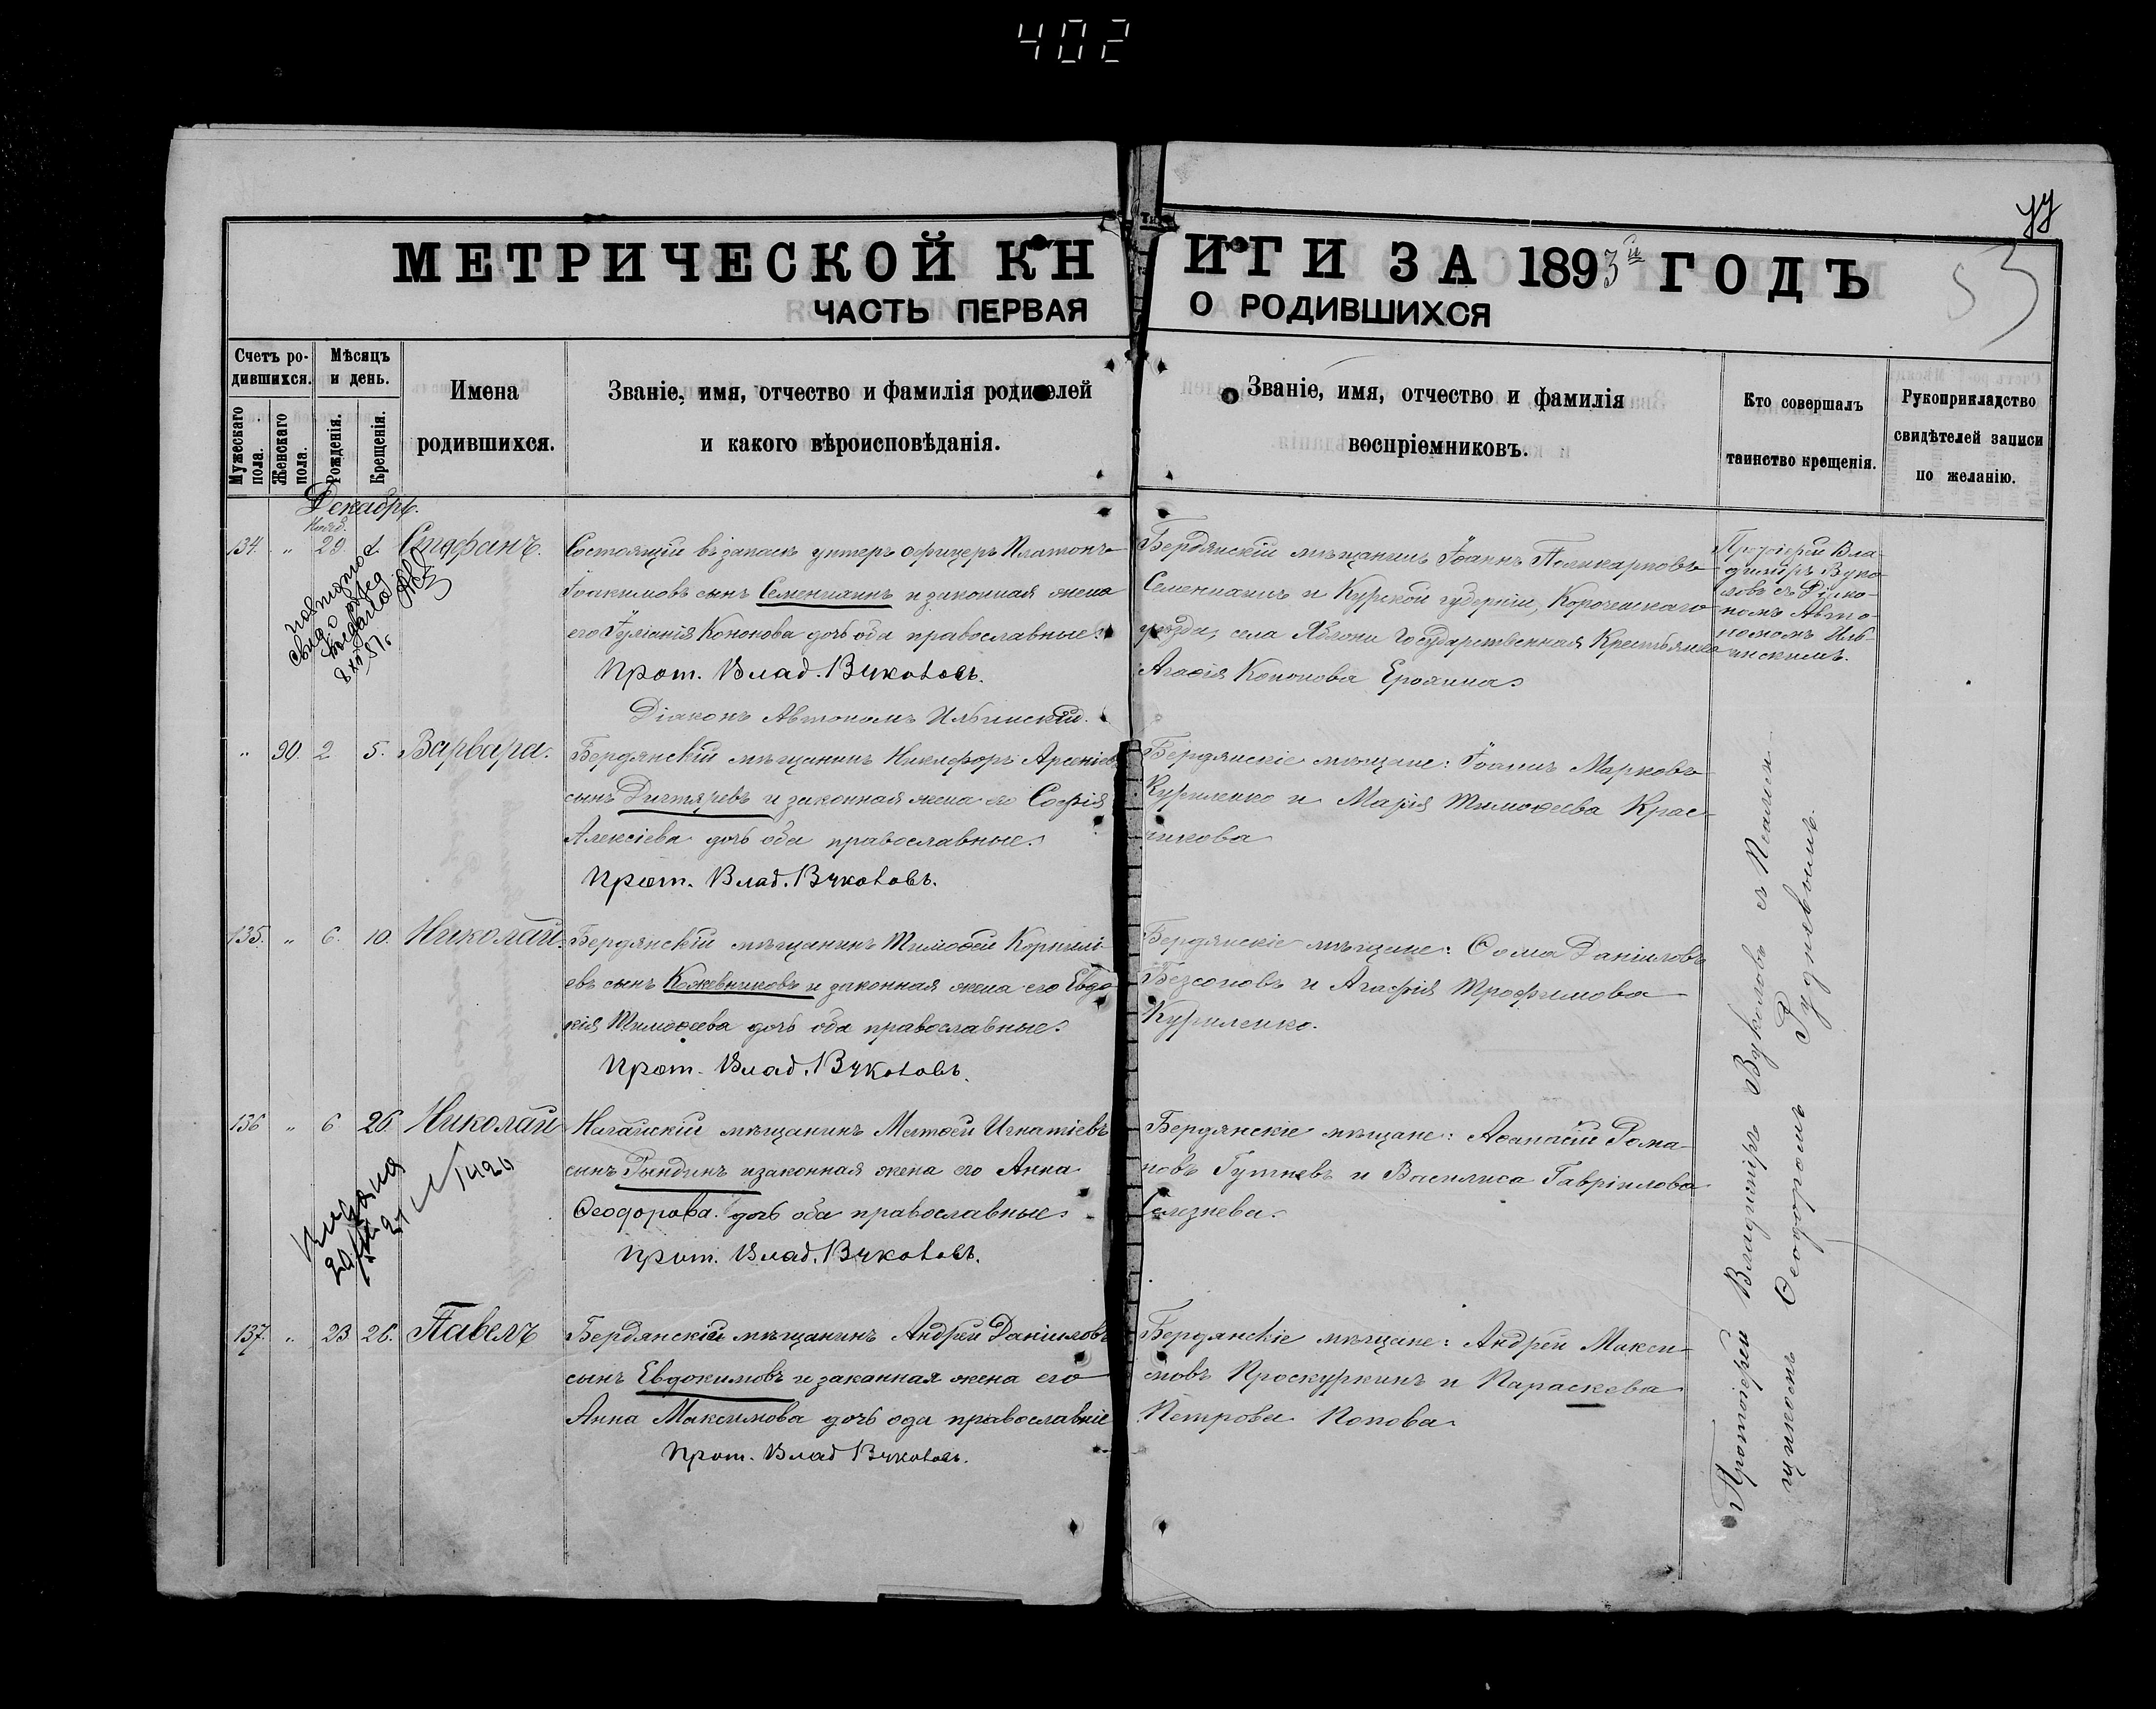 402
МЕТРИЧЕСКОЙ КНИГИ ЗА 1893й ГОДЪ
ЧАСТЬ ПЕРВАЯ О РОДИВШИХСЯ
53
Счетъ родившихся.
Мужескаго пола.
Женскаго пола.
Мѣсяцъ и день.
Рожденія.
Крещенія.
Имена родившихся.
Званіе, имя, отчество и фамилія родителей
и какого вѣроисповѣданія.
Званіе, имя, отчество и фамилія
воспріемниковъ.
Кто совершалъ
таинство крещенія.
Рукоприкладство
свидѣтелей записи
по желанію.
Декабрь.
134. " 29. Стефанъ.
Состоящій въ запасѣ унтеръ офицеръ Платонъ
Іоакимовъ сынъ Семенчинъ и законная жена
его Іуліанія Кононова дочь оба православные.
Прот. Влад. Вуколовъ.
Діаконъ Автономъ Ильинскій.
Бердянскій мѣщанинъ Іоаннъ Поликарповъ
Семенчинъ и Курской губерніи, Корочанскаго
уѣзда, села Яблони Государственная Крестьянка
Агафія Кононова Ерохина.
Протоіерей Вла-
диміръ Вуко-
ловъ съ Діако-
номъ Авто-
номомъ Иль-
инскимъ.
" 90. 2 5. Варвара.
Бердянскій мѣщанинъ Никифоръ Арсеніевъ
сынъ Дигтяревъ и законная жена его Софія
Алексіева дочь оба православные.
Прот. Влад. Вуколовъ.
Бердянскіе мѣщане: Іоаннъ Марковъ
Куриленко и Марія Тимоѳеева Крас-
никова
135. " 6. 10. Николай.
Бердянскій мѣщанинъ Тимоѳей Корнилі-
евъ сынъ Кожевниковъ и законная жена его Евдо-
кія Тимоѳеева дочь оба православные.
Прот. Влад. Вуколовъ.
Бердянскіе мѣщане: Ѳома Даніиловъ
Безсоновъ и Агафія Трофимова
Куриленко.
136 " 6 26. Николай
Ногайскій мѣщанинъ Матѳей Игнатіевъ
сынъ Рындинъ и законная жена его Анна
Ѳеодорова дочь оба православные.
Прот. Влад. Вуколовъ.
Бердянскіе мѣщане: Аѳанасій Рома-
новъ Гутневъ и Василиса Гавріилова
Селезнева.
137. " 23. 26. Павелъ
Бердянскій мѣщанинъ Андрей Даніиловъ
сынъ Евдокимовъ и заканная жена его
Анна Максимова дочь ода православніе
Прот. Влад Вуколовъ.
Бердянскіе мѣщане: Андрей Макси-
мовъ Проскуркинъ и Параскева
Петрова Попова.
Протоіерей Владиміръ Вуколовъ съ Псалом-
щикомъ Ѳеодоромъ Рудневымъ.